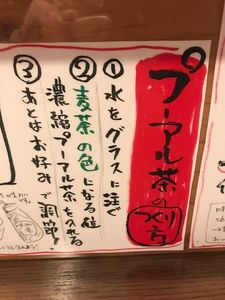 プーアル茶の
つくり方
①水をグラスに注ぐ
②麦茶の色になる位
濃縮プーアル茶を入れる
③あとはお好みで調節!